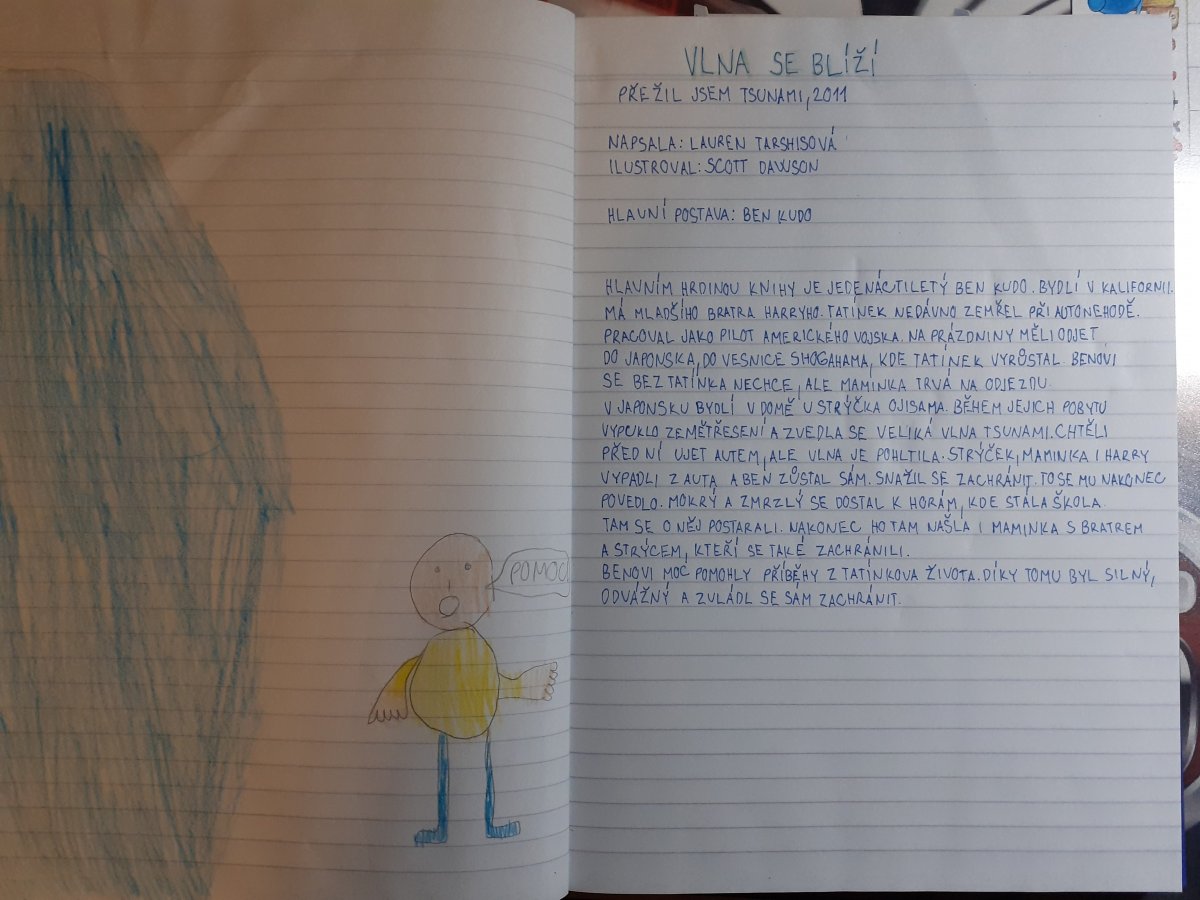 VLNA SE BLÍŽÍ
PŘEŽIL JSEM TSUNAMI, 2011
NAPSALA: LAUREN TARSHISOVÁ
ILUSTROVAL: SCOTT DAWSON
HLAVNÍ POSTAVA: BEN KUDO
HLAVNÍM HRDINOU KNIHY JE JEDENÁCTILETÝ BEN KUDO. BYDLÍ V KALIFORNII.
MÁ MLADŠÍHO BRATRA HARRYHO. TATÍNEK NEDÁVNO ZEMŘEL PŘI AUTONEHODĚ.
PRACOVAL JAKO PILOT AMERICKÉHO VOJSKA. NA PRÁZDNINY MĚLI ODJET
DO JAPONSKA, DO VESNICE SHOGAHAMA, KDE TATÍNEK VYRŮSTAL. BENOVI
SE BEZ TATÍNKA NECHCE, ALE MAMINKA TRVÁ NA ODJEZDU.
V JAPONSKU BYDLÍ V DOMĚ U STRÝČKA OJISAMA. BĚHEM JEJICH POBYTU
VYPUKLO ZEMĚTŘESENÍ A ZVEDLA SE VELIKÁ VLNA TSUNAMI. CHTĚLI
PŘED NÍ UJET AUTEM, ALE VLNA JE POHLTILA. STRÝČEK, MAMINKA I HARRY
VYPADLI Z AUTA A BEN ZŮSTAL SÁM. SNAŽIL SE ZACHRÁNIT. TO SE MU NAKONEC
POVEDLO. MOKRÝ A ZMRZLÝ SE DOSTAL K HORÁM, KDE STÁLA ŠKOLA.
TAM SE O NĚJ POSTARALI. NAKONEC HO TAM NAŠLA I MAMINKA S BRATREM
A STRÝCEM, KTEŘÍ SE TAKÉ ZACHRÁNILI.
BENOVI MOC POMOHLY PŘÍBĚHY Z TATÍNKOVA ŽIVOTA. DÍKY TOMU BYL SILNÝ,
ODVÁŽNÝ A ZVLÁDL SE SÁM ZACHRÁNIT.
POMOC